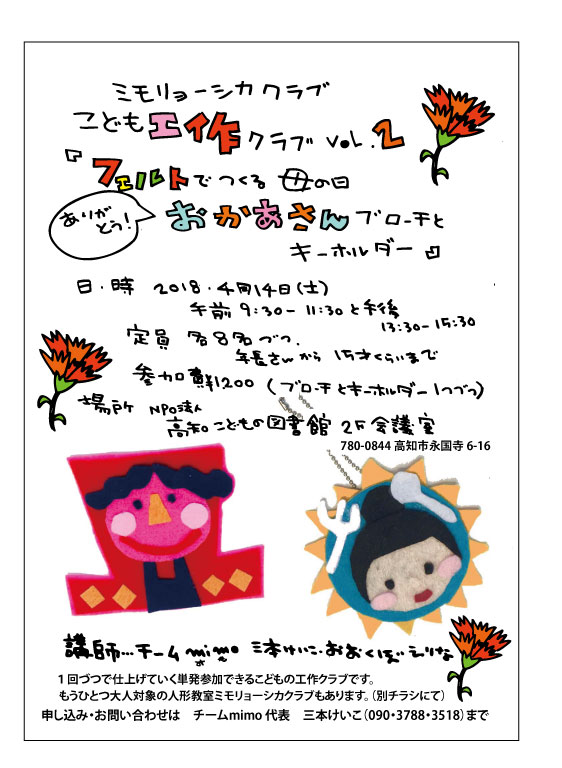 ミモリョーシカクラブ
こども工作クラブ vol.2
『フェルトでつくる 母の日
ありがとう!
おかあさんブローチと
キーホルダー』
日・時 2018・4月14日(土)
午前9:30-11:30と午後
13:30-15:30
定員 各8名づつ.
年長さんから 15才くらいまで
参加費1200 (ブローチとキーホルダー1つづつ)
場所 NPO法人
高知こどもの図書館 2F会議室
780-0844 高知市永国寺 6-16
講師…チームmimo 三本けいこ・おおくぼえりな
1回づつで仕上げていく単発参加できるこどもの工作クラブです。
もうひとつ大人対象の人形教室ミモリョーシカクラブもあります。(別チラシにて)
申し込み・お問い合わせは チームmimo 代表 三本けいこ(090・3788・3518)まで